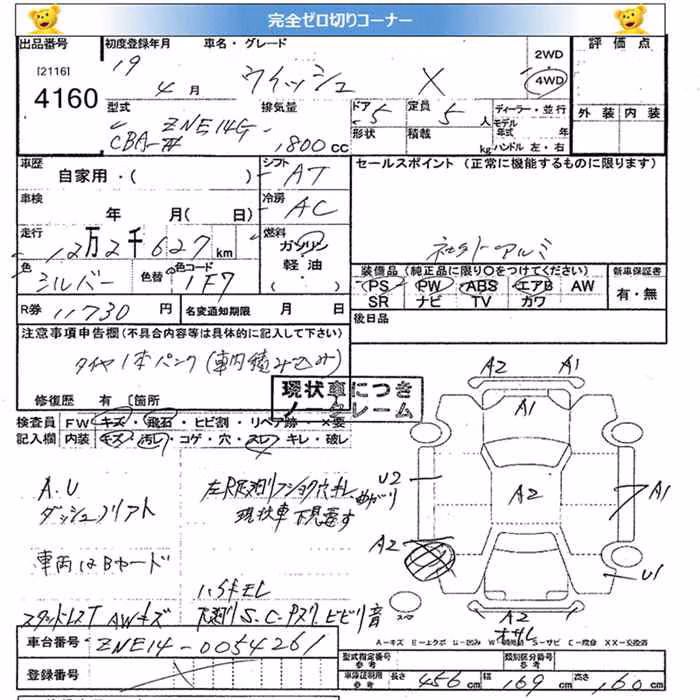 完全ゼロ切りコーナー
出品番号 初度登録年月 車名・グレード 評価点
[2116] 19 4月 ウィッシュ X 2WD
4160 4WD
型式 排気量 ドア 定員 ディーラー・並行 外装 内装
CBA- ZNE14G 1800cc 5 5人 モデル年式 年
形状 積載 kg ハンドル 左・右
車歴 シフト セールスポイント (正常に機能するものに限ります)
自家用・( ) AT
車検 冷房
年 月( 日) AC
走行 燃料
12万2千627km ガソリン 社外アルミ
色 色替 色コード 軽・油 装備品(純正品に限り○をつけてください) 新車保証書
シルバー 1F7 ( ) PS PW ABS エアB AW 有・無
SR ナビ TV カワ
R券 11730円 名変通知期限 月 日 後日品
注意事項申告欄(不具合内容等は具体的に記入して下さい)
タイヤ1本パンク(車内積み込み)
修復歴 有 〔箇所 現状車につき
ノークレーム
検査員 FW キズ・飛石・ヒビ割・リペア跡・×要
記入欄 内装 キズ・汚レ・コゲ・穴・スレ・キレ・破レ
A2 A1
A1
U2
A2
A1
A2
U1
A2
A.U
ダッシュ
現状車 下見渡す
車両はBヤード
スタッドレスT AWキズ S.C. ビビリ音
スペア
A−キズ E−エクボ
車台番号 ZNE14-0054261
登録番号
型式指定番号 参考 類別区分番号 参考
車庫証明用 参考 長さ 456cm 幅 169cm 高さ 160cm